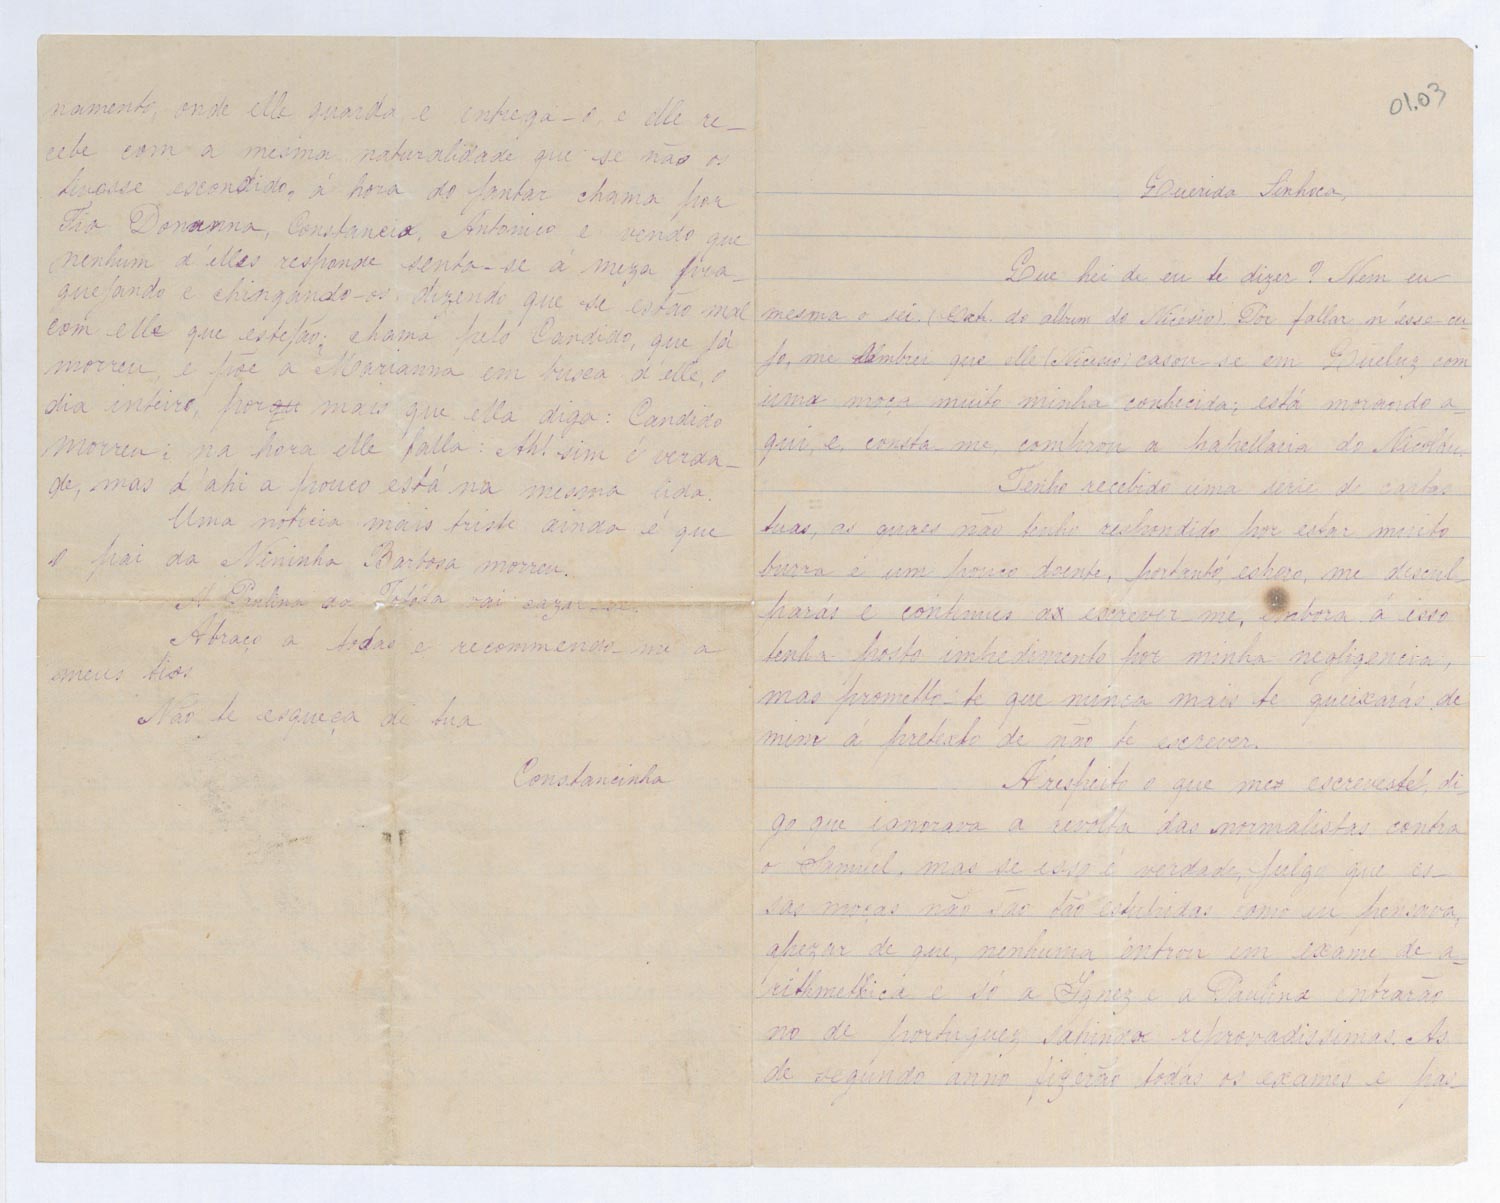 01.03
Querida Sinhoca,
Que hei de eu te dizer? Nem eu
mesma o sei. (Ext. do album do Nicesio). Por fallar n'esse cu-
jo, me lembrei que elle (Nicesio) casou-se em Queluz com
uma moça muito minha conhecida; está morando a-
qui, e, consta-me, comprou a papellaria do Nicolau.
Tenho recebido uma serie de cartas
tuas, as quaes não tenho respondido por estar muito
burra e um pouco doente, portanto, espero, me descul-
parás e continues a escrever-me, embora á isso
tenha posto impedimento por minha negligencia,
mas prometto-te que nunca mais te queixarás de
mim á pretexto de não te escrever.
Á respeito o que me escreveste, di-
go que ignorava a revolta das normalistas contra
o Samuel, mas se isso é verdade, julgo que es-
sas moças não são tão estupidas como eu pensava,
apezar de que, nenhuma entrou em exame de a-
rithmetica e só a Ignez e a Paulina entrarão
no de portuguez, sahindo reprovadissimas. As
de segundo anno fizerão todos os exames e pas-
namento, onde elle guarda e entrega-o, e elle re-
cebe com a mesma naturalidade que se não os
tivesse escondido, á hora do jantar chama por
Tia Donanna, Constancia, Antonico e vendo que
nenhum d'elles responde senta-se á meza pra-
guejando e chingando-os, dizendo que se estão mal
com elle que estejão; chama pelo Candido, que já
morreu, e põe a Marianna em busca d'elle, o
dia inteiro, por mais que ella diga: Candido
morreu; na hora elle falla: Ah! sim é verda-
de, mas d'ahi a pouco está na mesma lida.
Uma noticia mais triste ainda é que
o pai da Nininha Barbosa morreu.
A Paulina da Totóta vai cazar-se.
Abraço a todas e recommendo-me a
meus tios.
Não te esqueça de tua
Constancinha